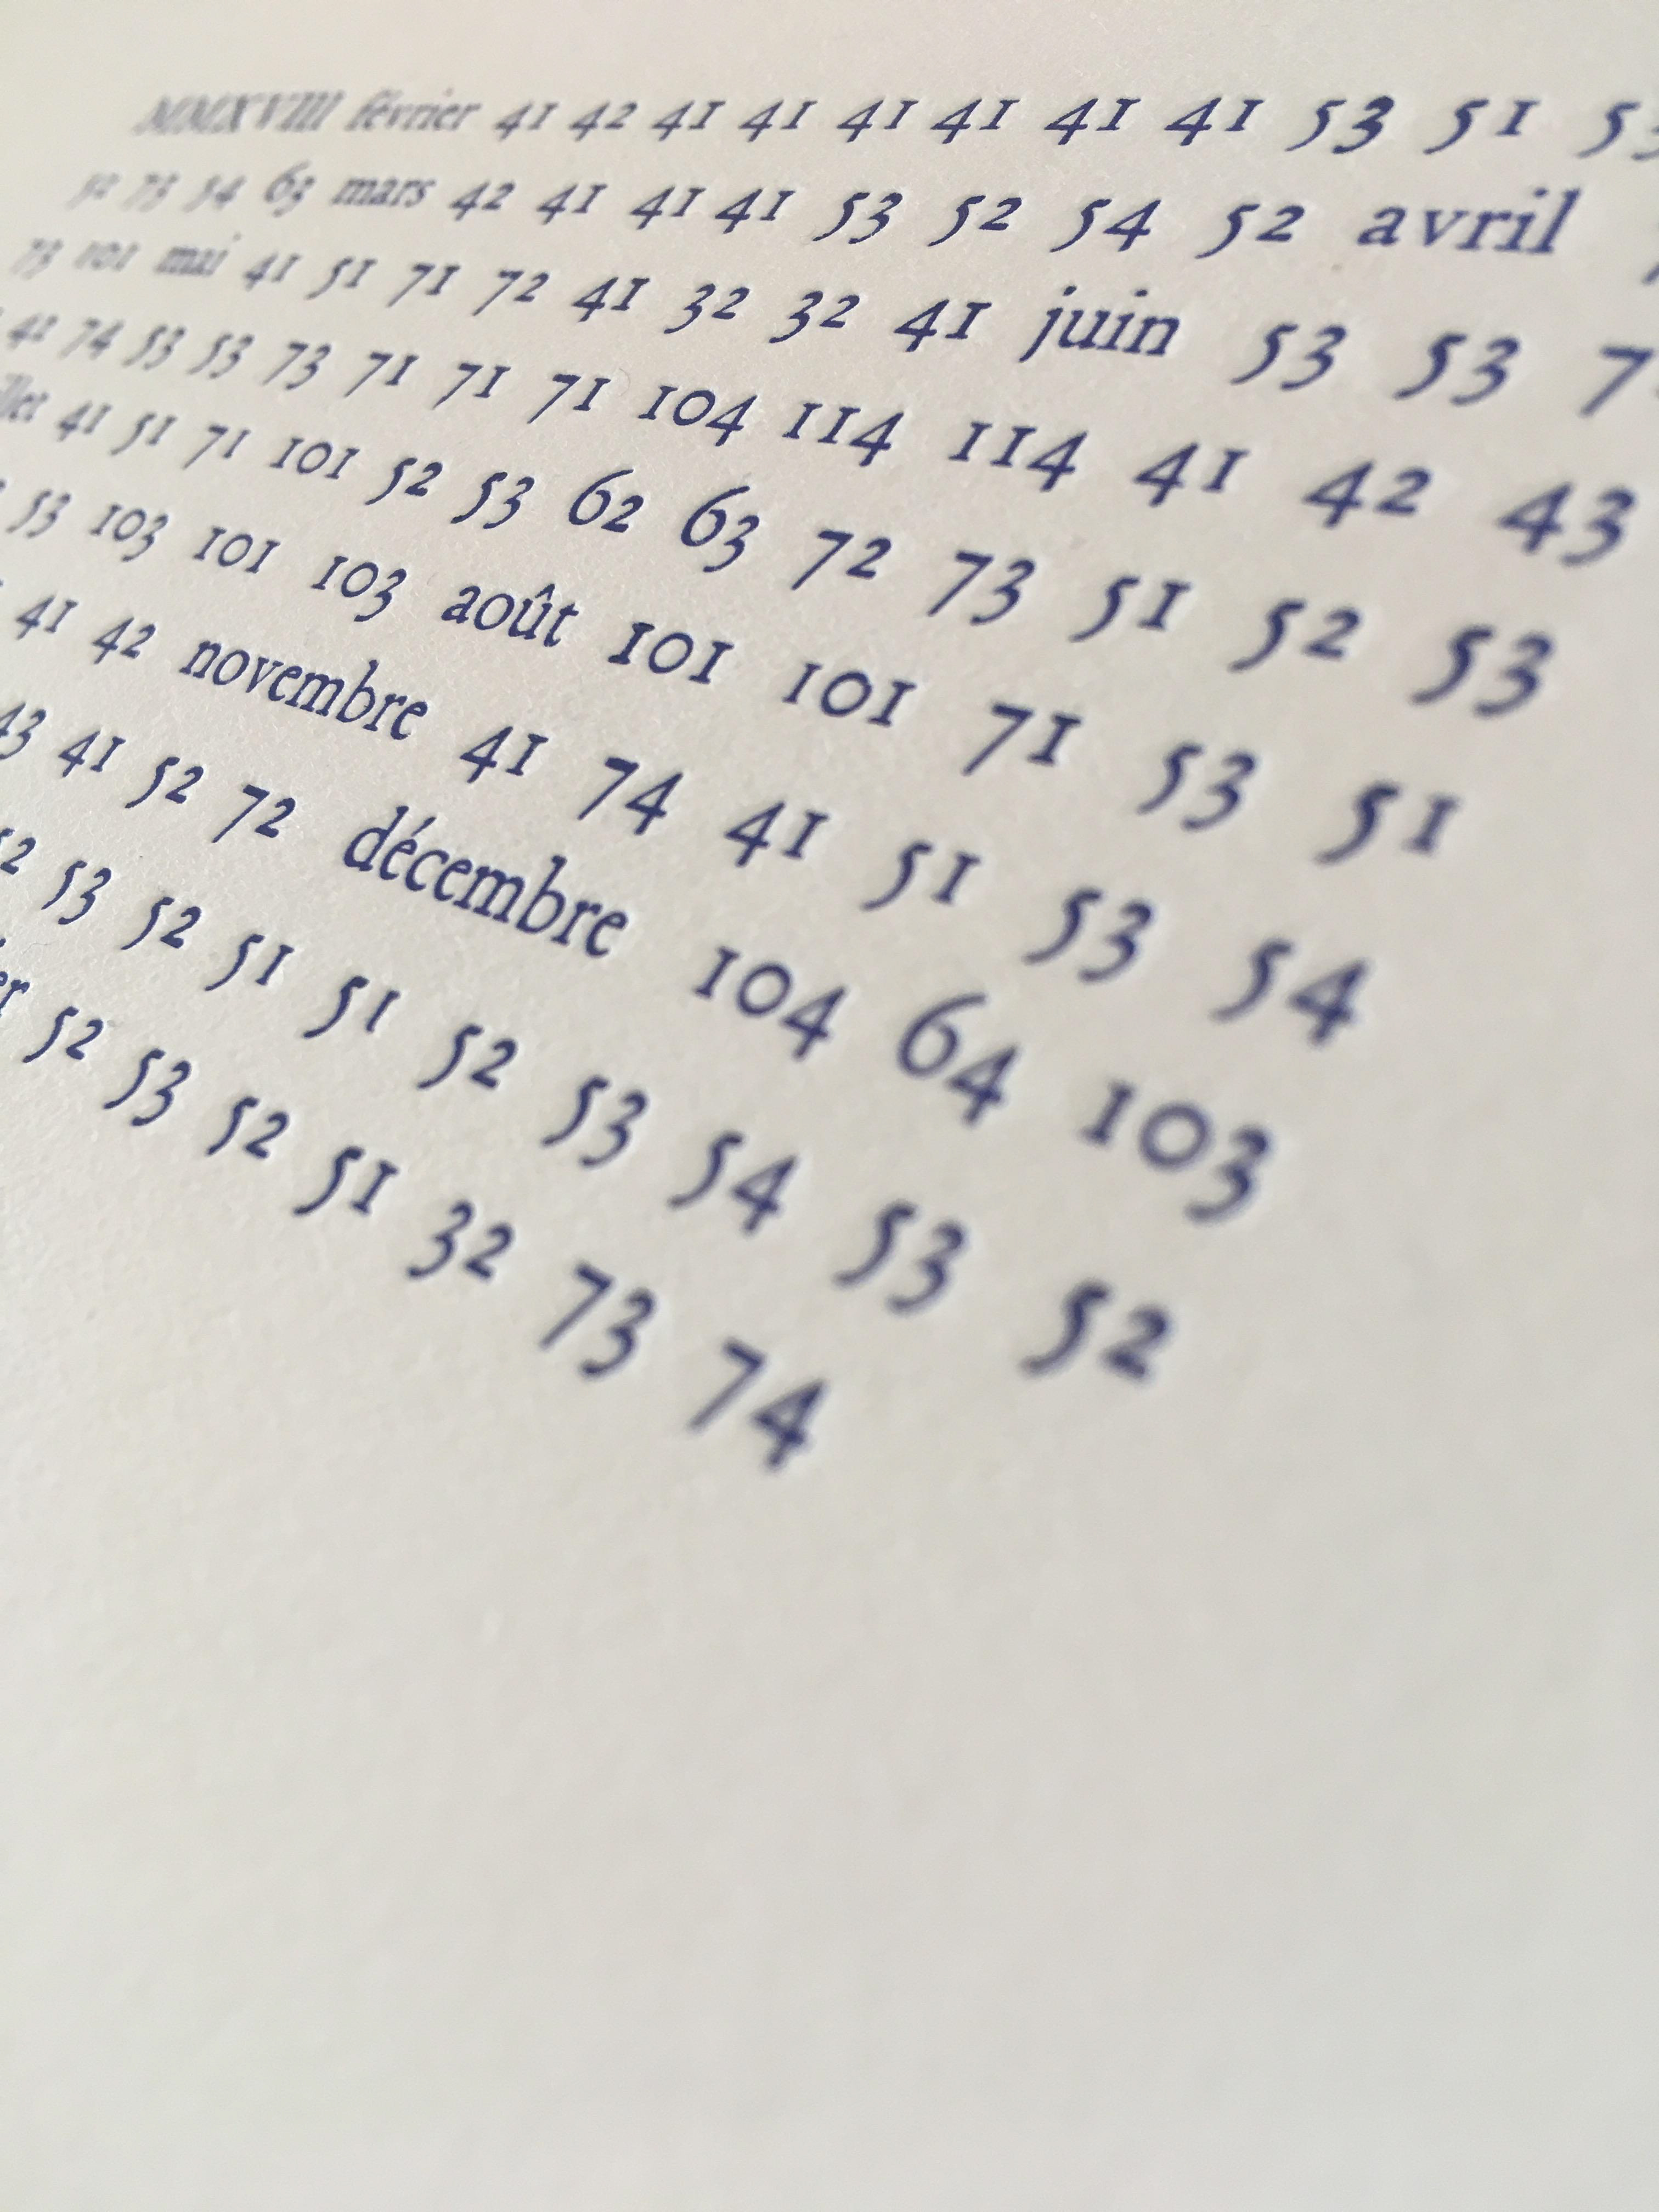 MMXVIII février 41 42 41 41 41 41 41 41 53 51 53
52 73 54 63 mars 42 41 41 41 53 52 54 52 avril
73 101 mai 41 51 71 72 41 32 32 41 juin 53 53
42 74 53 53 73 71 71 71 104 114 114 41 42 43
41 51 71 101 52 53 62 63 72 73 51 52 53
53 103 101 103 août 101 101 71 53 51
41 42 novembre 41 74 41 51 53 54
43 41 52 72 décembre 104 64 103
52 53 52 51 51 52 53 54 53 52
52 53 52 51 32 73 74